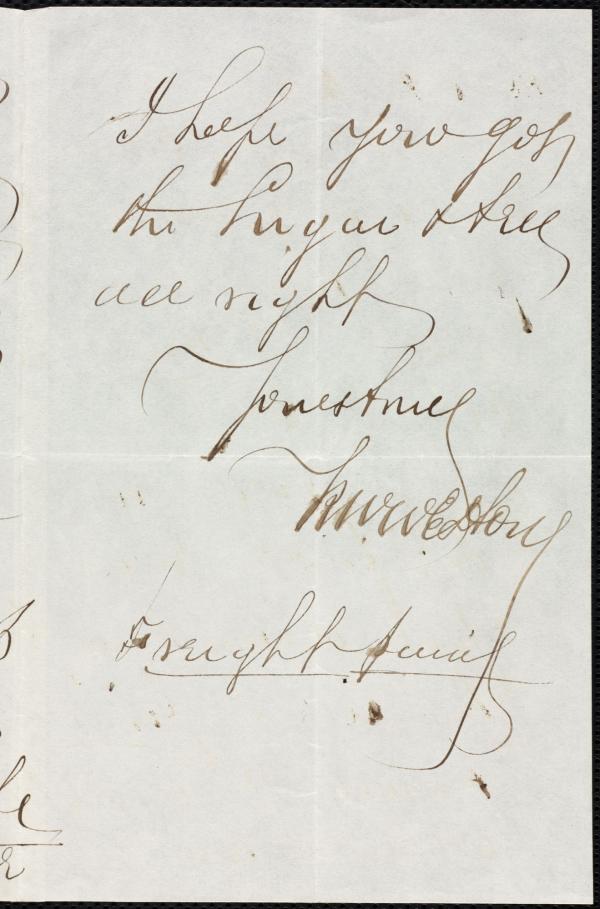 I hope you got
the Sugar & tree
all right
Yours truly
Weston
Freight paid